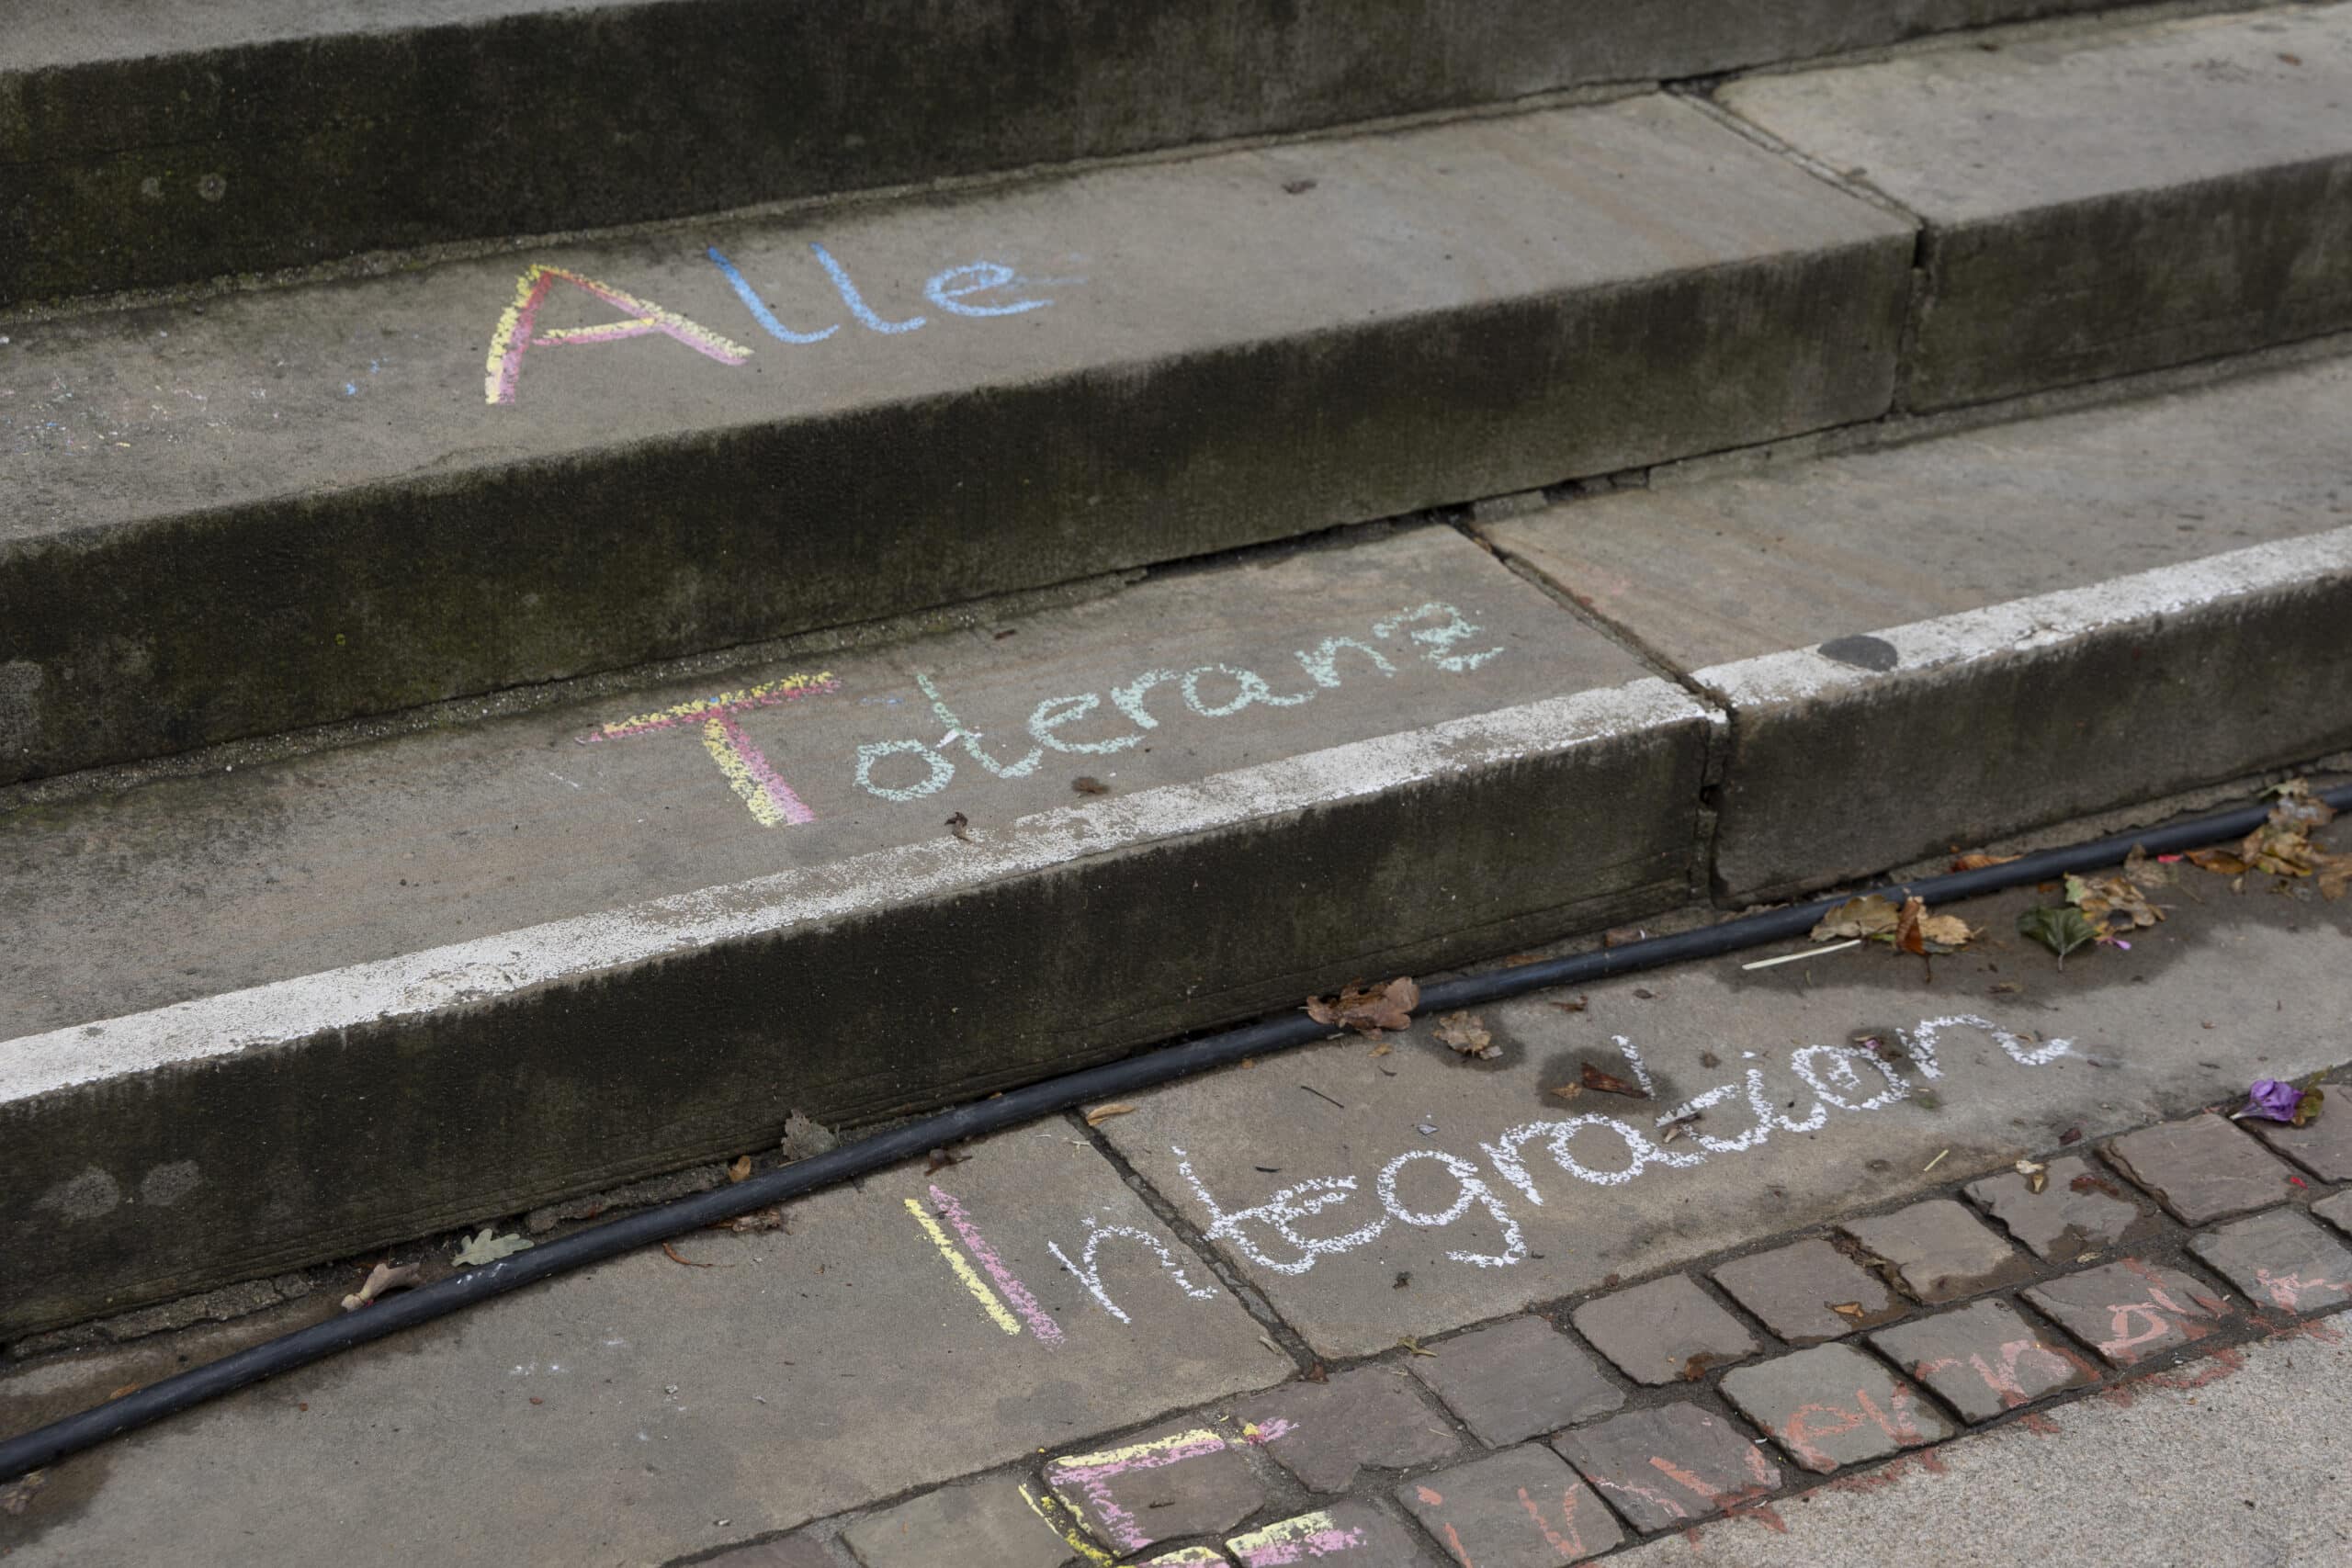 Alle
Toleranz
Integration